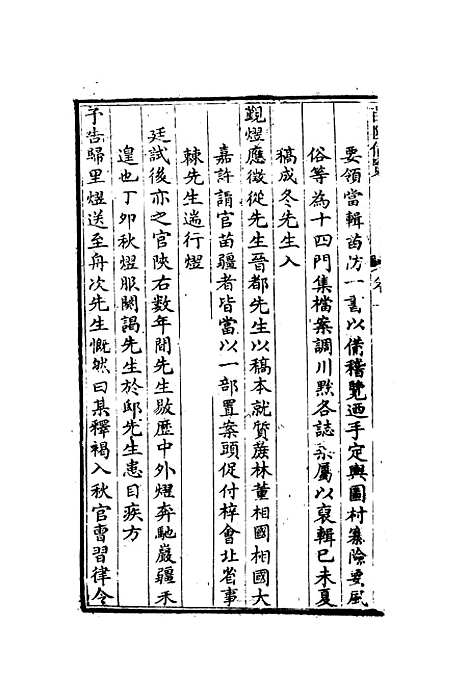 苗防備覽
卷一
要領當輯苗防一書以備稽覽廼手定輿圖村寨險要風
俗等為十四門集檔案調川黔各誌 屬以裒輯已未夏
稿成冬先生入
覲熤應徵從先生晉都先生以稿本就質蔗林董相國相國大
嘉許謂官苗疆者皆當以一部置案頭促付梓會北省事
棘先生遄行熤
廷試後亦之官陝右数年間先生敭歷中外熤奔馳巖疆未
遑也丁卯秋熤服闋謁先生於邸先生患目疾方
予告歸里熤送至舟次先生慨然曰某釋褐入秋官曹習律令